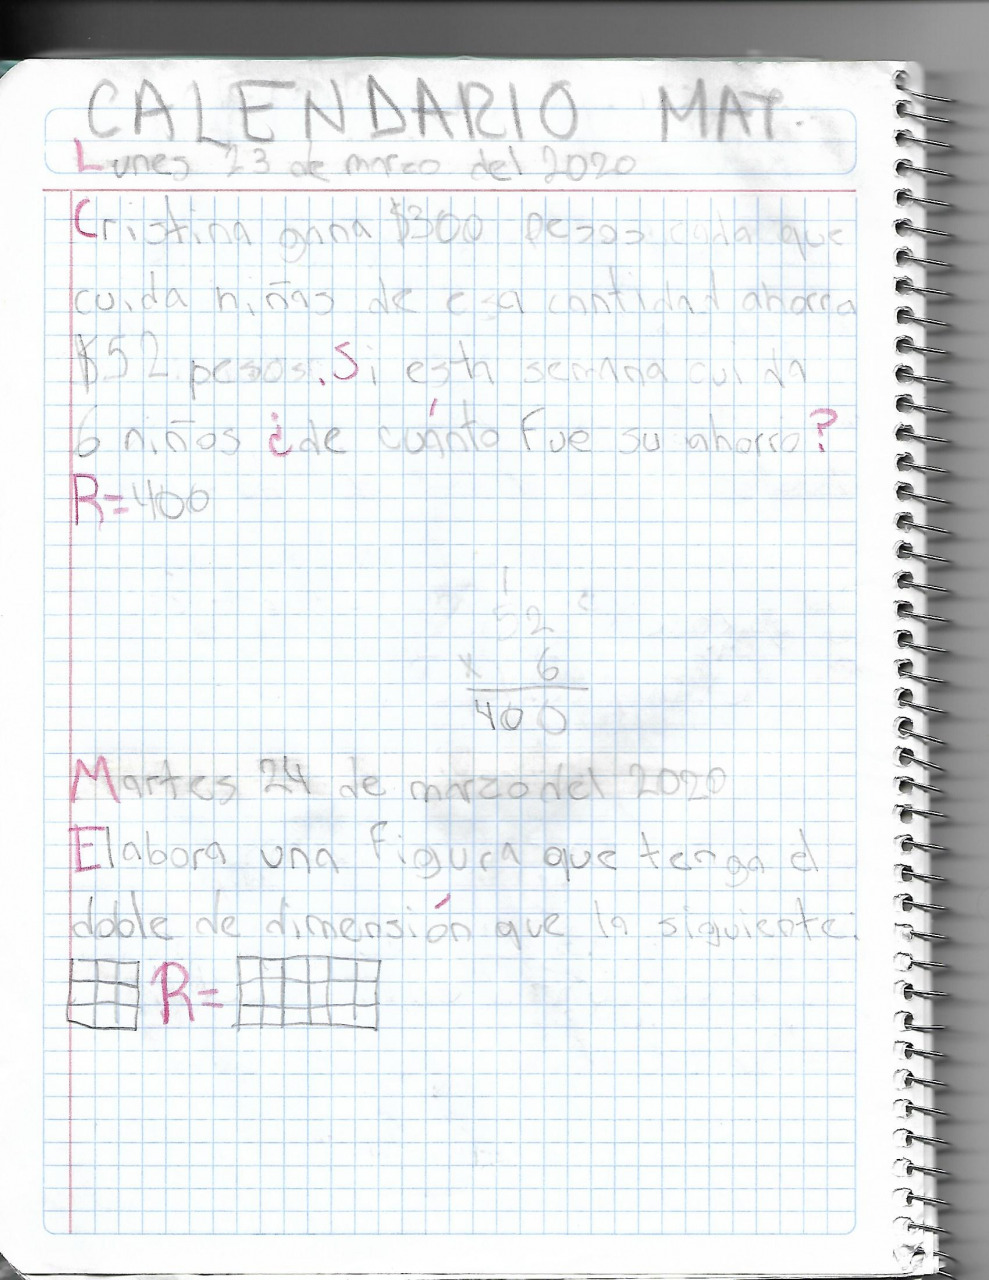 CALENDARIO MAT.
Lunes 23 de marzo del 2020
Cristina gana $300 pesos cada que
cuida niñas de esa cantidad ahorra
$52 pesos. Si esta semana cuida
6 niños ¿de cuánto Fue su ahorro?
R=400
1
52
x 6
400
Martes 24 de marzo del 2020
Elabora una figura que tenga el
doble de dimensión que la siguiente:
R=